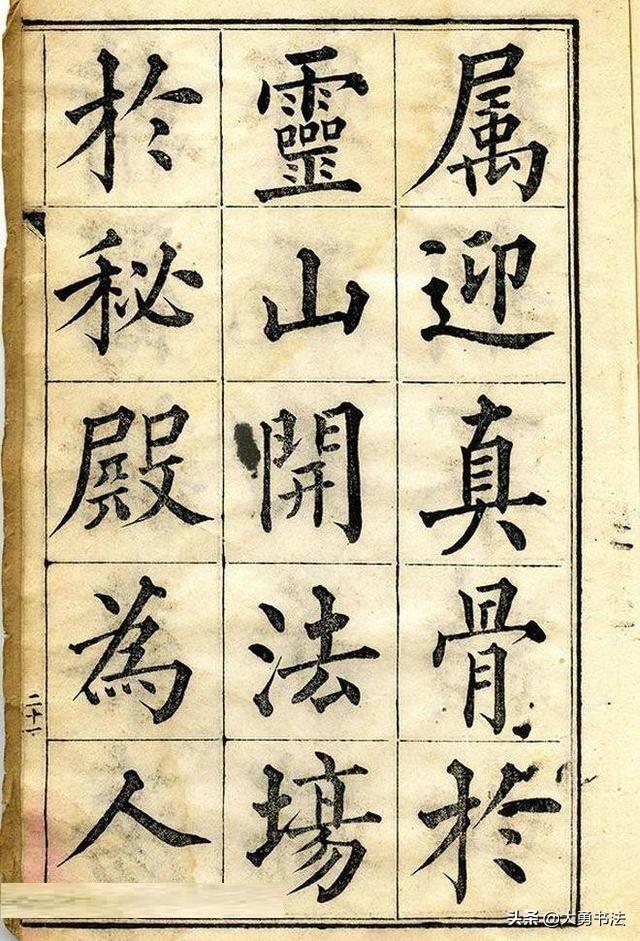 属迎真骨於
靈山開法場
於秘殿為人
二十一
头条 @大勇书法